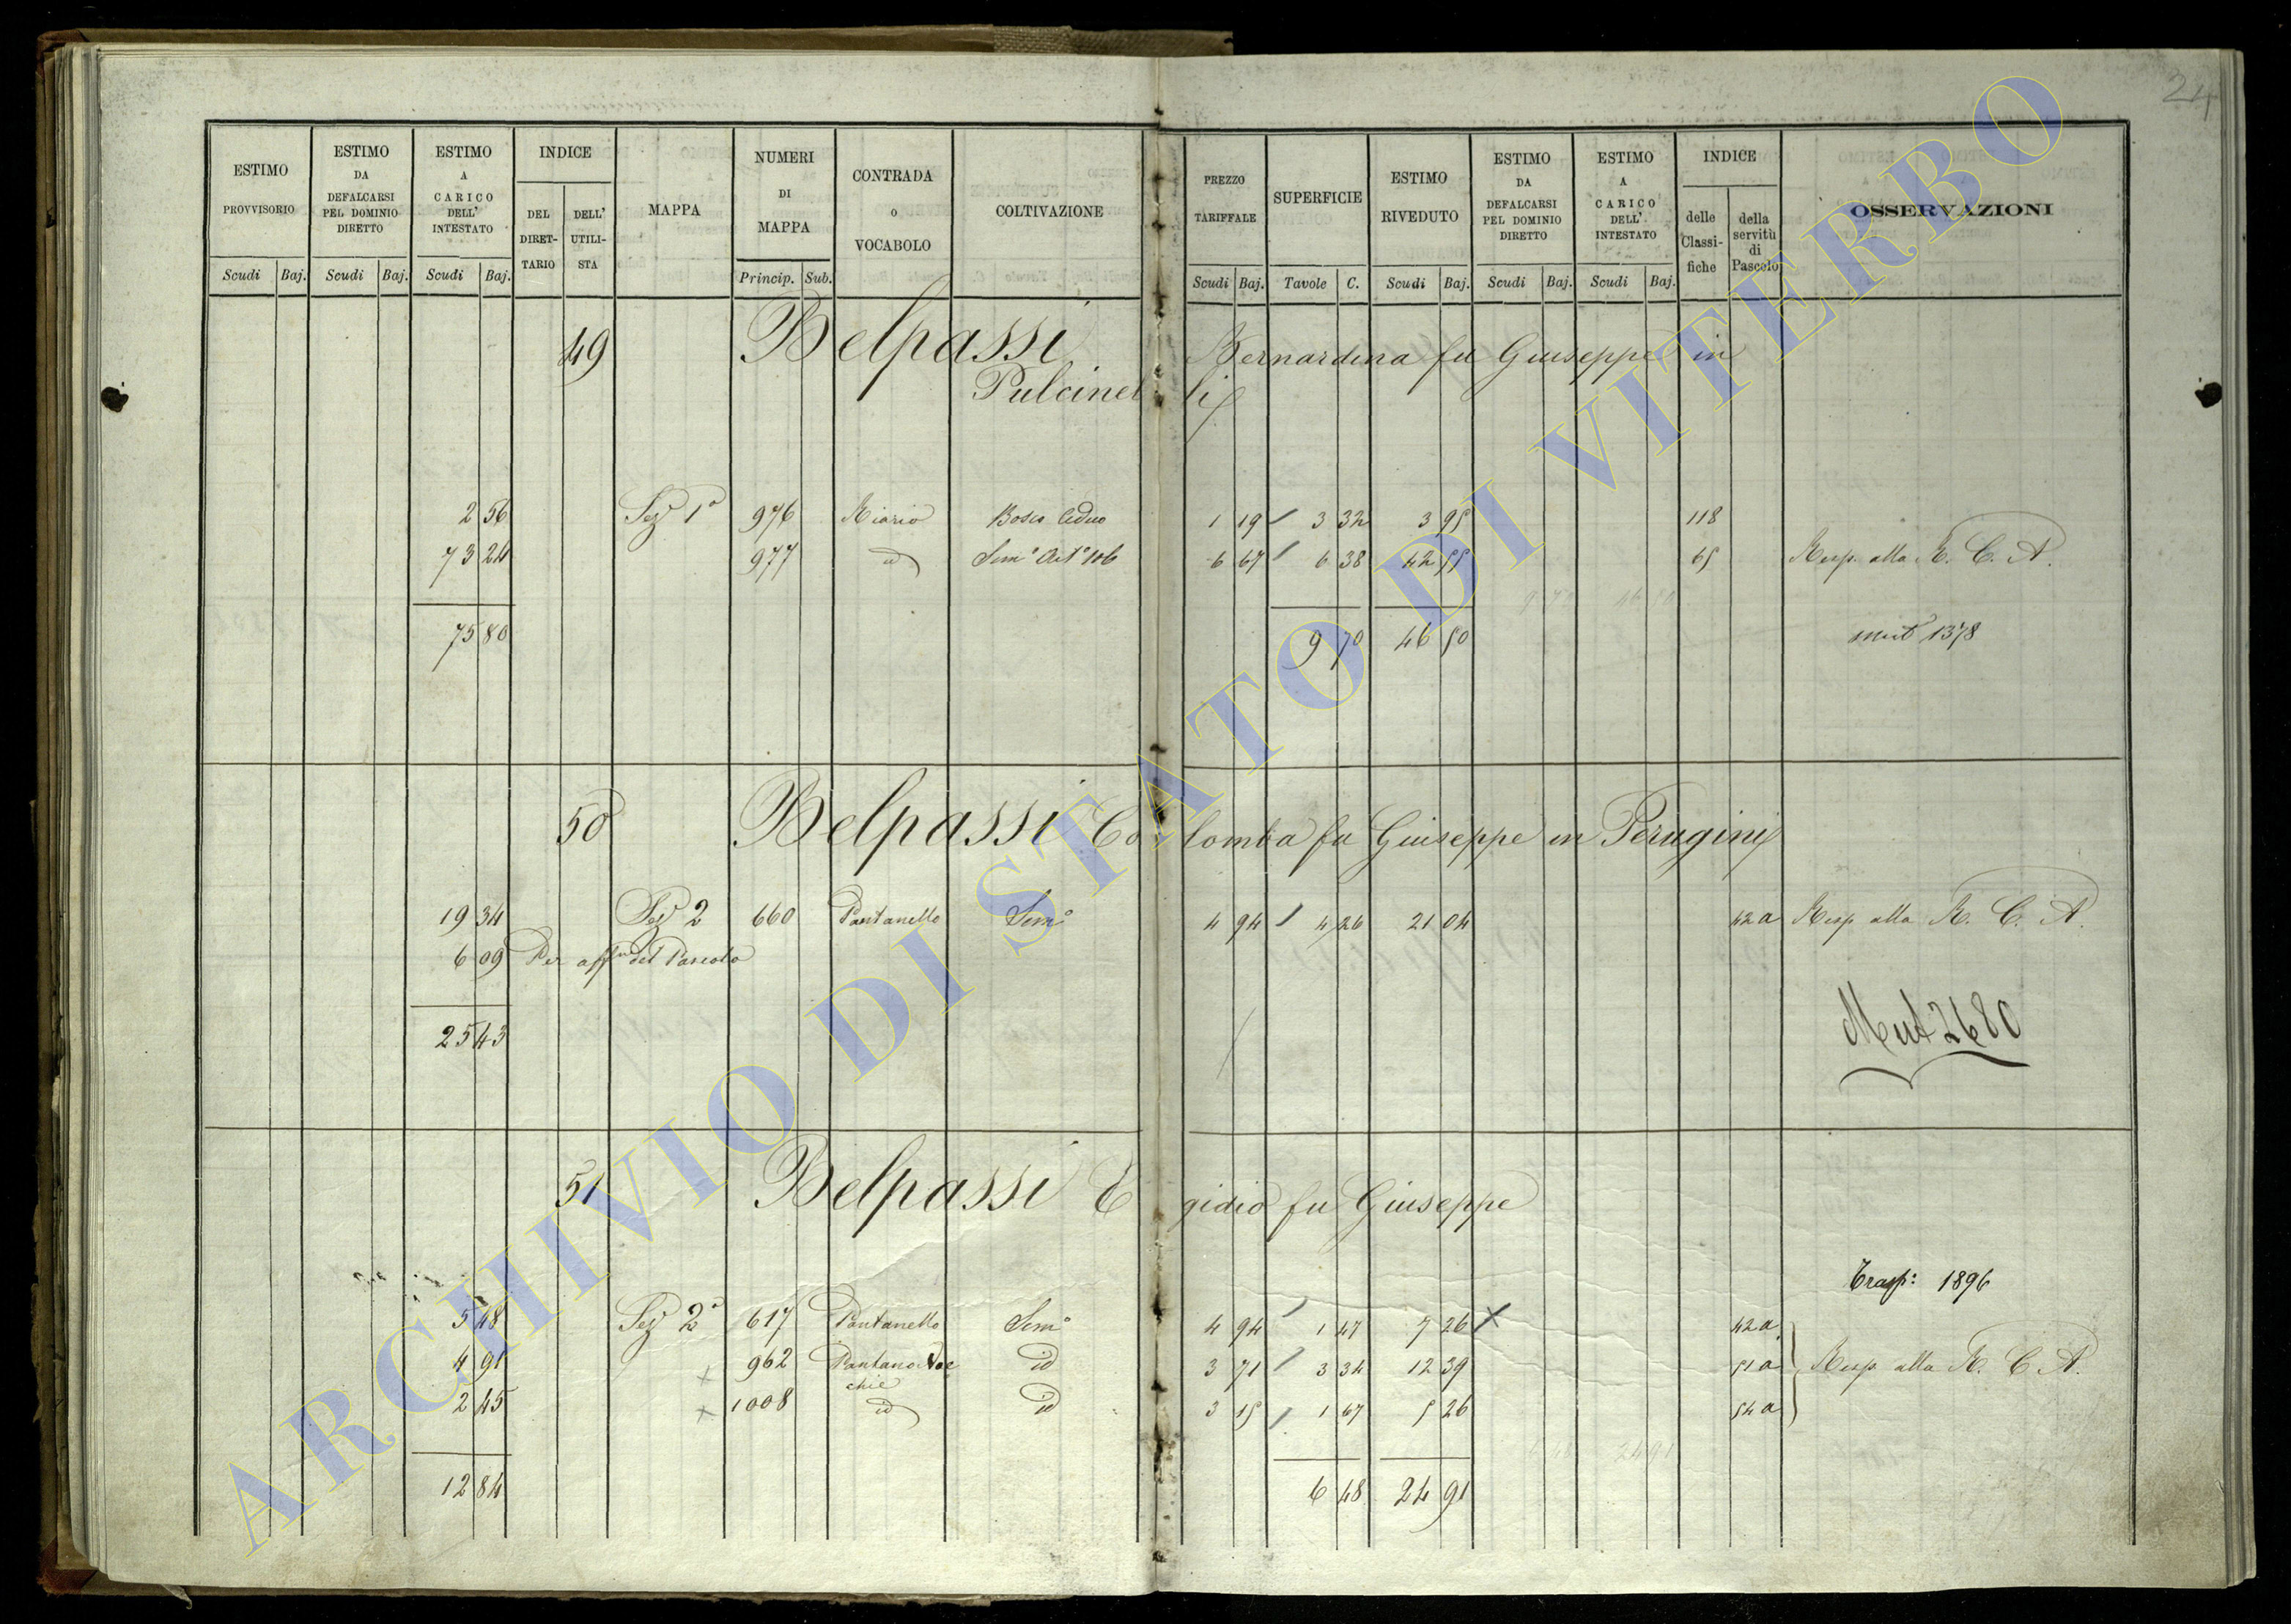 24
ESTIMO PROVVISORIO Scudi Baj.
ESTIMO DA DEFALCARSI PEL DOMINIO DIRETTO Scudi Baj.
ESTIMO A CARICO DELL' INTESTATO Scudi Baj.
INDICE DEL DIRET-TARIO DELL' UTILI-STA
MAPPA
NUMERI DI MAPPA Princip. Sub.
CONTRADA O VOCABOLO
COLTIVAZIONE
PREZZO TARIFFALE Scudi Baj.
SUPERFICIE Tavole C.
ESTIMO RIVEDUTO Scudi Baj.
ESTIMO DA DEFALCARSI PEL DOMINIO DIRETTO Scudi Baj.
ESTIMO A CARICO DELL' INTESTATO Scudi Baj.
INDICE delle Classi-fiche della servitù di Pascolo
OSSERVAZIONI
49 Belpassi Bernardina fu Giuseppe in
Pulcinelli
2 56 Sez 1ª 976 Riario Bosco Ceduo 1 19 3 32 3 95 118
73 24 977 id Semº Artº 106 6 67 6 38 42 55 65 Resp. alla R. C. A.
75 80 9 70 46 50 mut 1378
50 Belpassi Colomba fu Giuseppe in Perugini
19 34 Sez 2 660 Pantanello Semº 4 94 4 26 21 04 42 a Resp alla R. C. A.
6 09 Per affne del Pascolo
25 43
Mut 2680
51 Belpassi Egidio fu Giuseppe
Trasp: 1896
5 48 Sez 2ª 617 Pantanello Semº 4 94 1 47 7 26 X 42 a
4 91 x 962 Pantano Noc id 3 71 3 34 12 39 51 a Resp alla R. C. A.
chie
2 45 x 1008 id id 3 15 1 67 5 26 54 a
12 84 6 48 24 91
ARCHIVIO DI STATO DI VITERBO